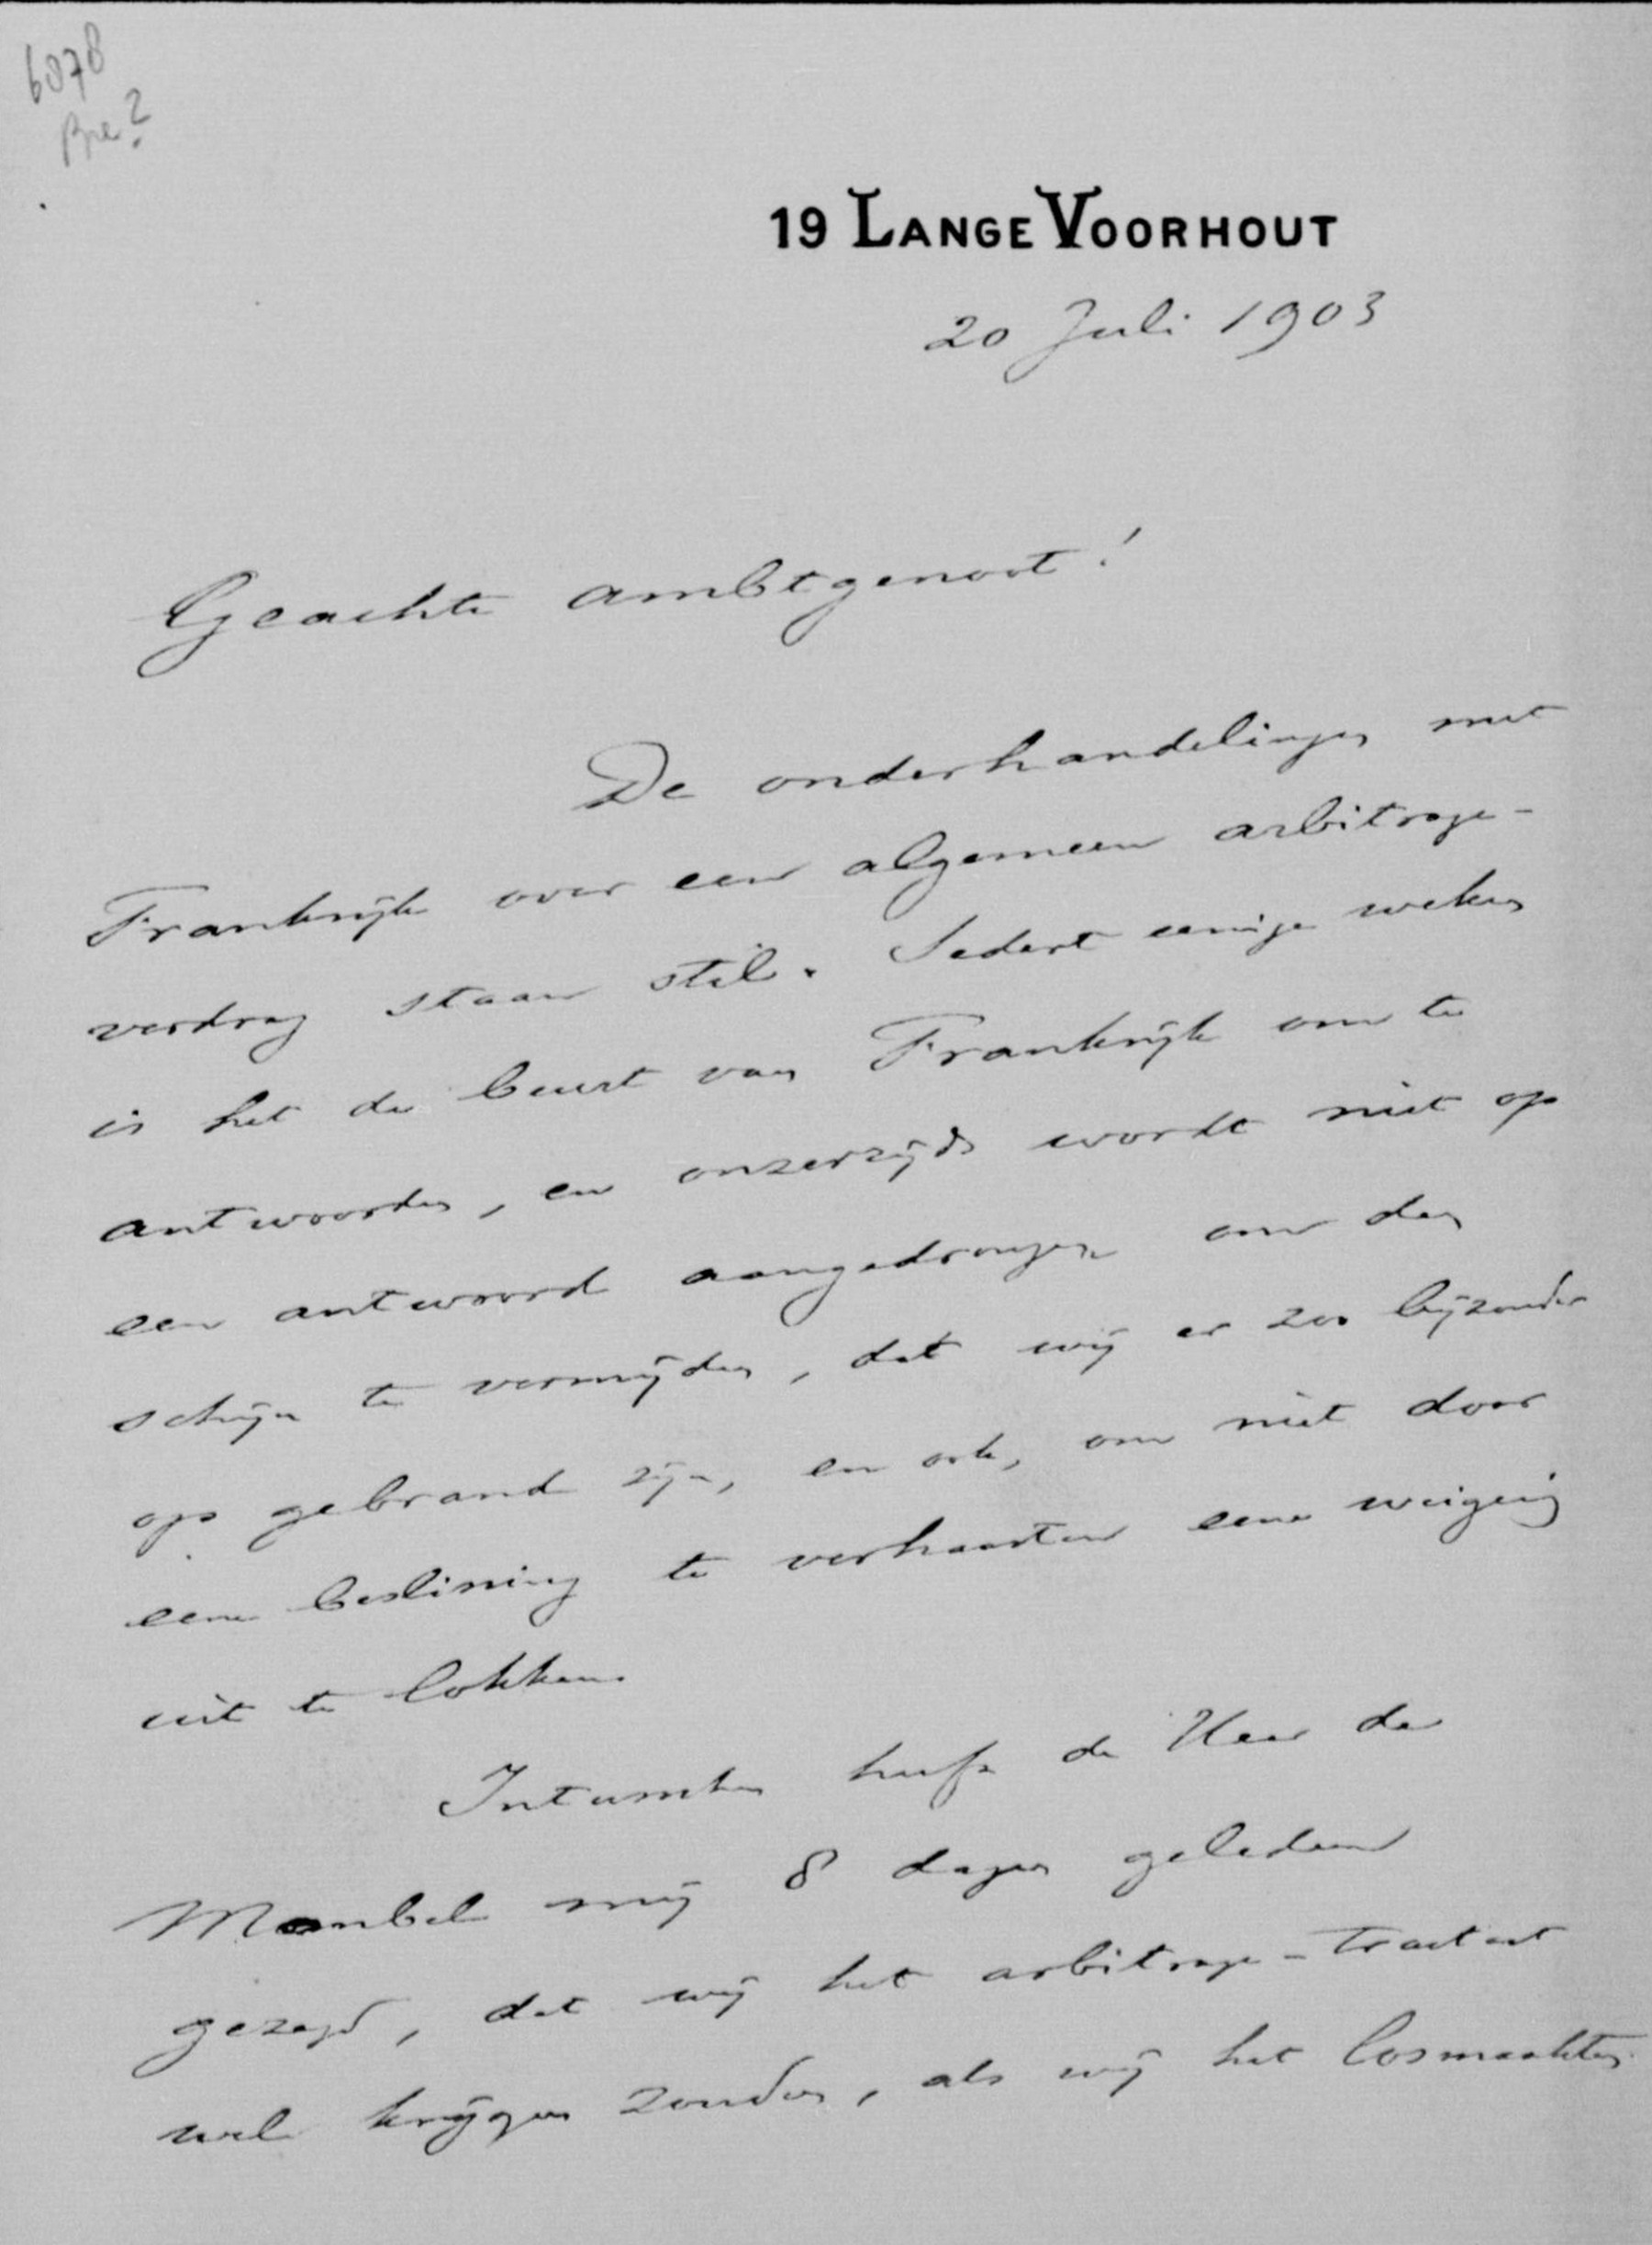 6078
19 LANGE VOORHOUT
20 Juli 1903
Geachte ambtgenoot!
De onderhandelingen met
Frankrijk over een algemeen arbitrage-
verdrag staan stil. Sedert eenige weken
is het de beurt van Frankrijk om te
antwoorden, en onzerzijds wordt niet op
een antwoord aangedrongen om den
schijn te vermijden, dat wij er zoo bijzonder
op gebrand zijn, en ook, om niet door
eene beslissing te verhaasten eene weigering
uit te lokken.
Intusschen heeft de Heer de
Monbel mij 8 dagen geleden
gezegd, dat wij het arbitrage-tractaat
wel krijgen zouden, als wij het losmaakten